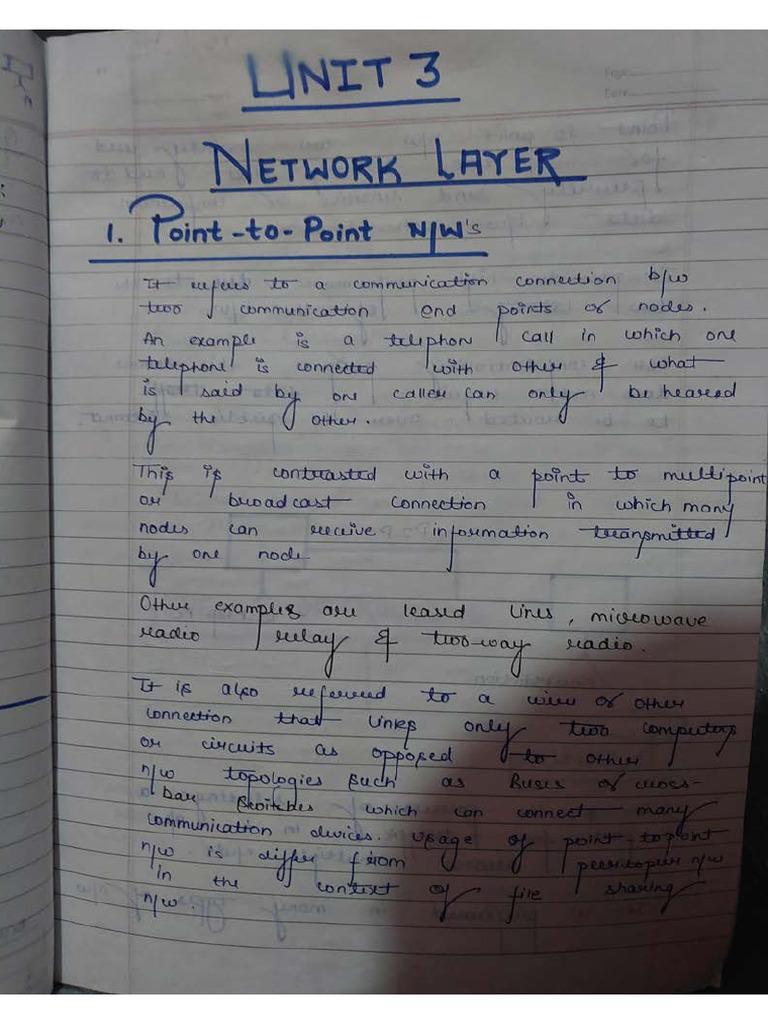 UNIT 3
NETWORK LAYER
1. Point-to-Point N/W's
It refers to a communication connection b/w
two communication end points or nodes.
An example is a telephon call in which one
telephone is connected with other & what
is said by one caller can only be heared
by the other.
This is contrasted with a point to multipoint
or broadcast connection in which many
nodes can receive information transmitted
by one node
Other examples are leased lines, microwave
radio relay & two-way radio.
It is also referred to a wire or other
connection that links only two computers
or circuits as opposed to other
n/w topologies such as Buses or cross-
bar switches which can connect many
communication devices. Usage of point-to point
n/w is differ from peer to peer n/w
in the context of file sharing
n/w.